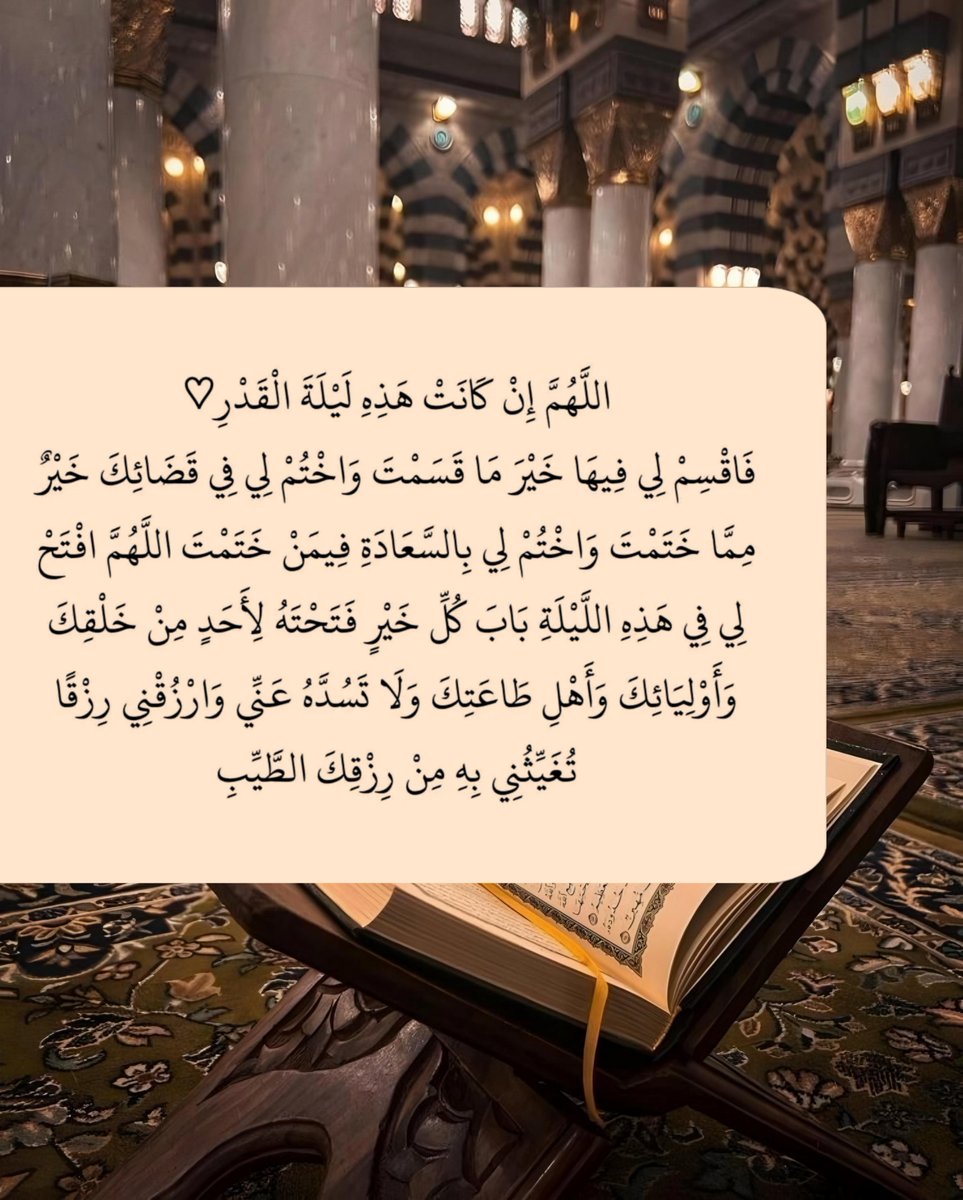 اللَّهُمَّ إِنْ كَانَتْ هَذِهِ لَيْلَةَ الْقَدْرِ♡
فَاقْسِمْ لِي فِيهَا خَيْرَ مَا قَسَمْتَ وَاخْتُمْ لِي فِي قَضَائِكَ خَيْرٌ
مِمَّا خَتَمْتَ وَاخْتُمْ لِي بِالسَّعَادَةِ فِيمَنْ خَتَمْتَ اللَّهُمَّ افْتَحْ
لِي فِي هَذِهِ اللَّيْلَةِ بَابَ كُلِّ خَيْرٍ فَتَحْتَهُ لِأَحَدٍ مِنْ خَلْقِكَ
وَأَوْلِيَائِكَ وَأَهْلِ طَاعَتِكَ وَلَا تَسُدَّهُ عَنِّي وَارْزُقْنِي رِزْقًا
تُغَيِّثُنِي بِهِ مِنْ رِزْقِكَ الطَّيِّبِ